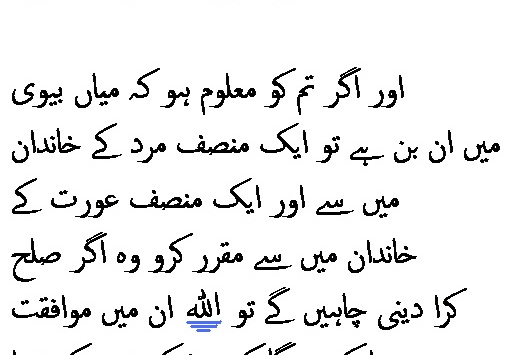 اور اگر تم کو معلوم ہو کہ میاں بیوی
میں ان بن ہے تو ایک منصف مرد کے خاندان
میں سے اور ایک منصف عورت کے
خاندان میں سے مقرر کرو وہ اگر صلح
کرا دینی چاہیں گے تو الله ان میں موافقت